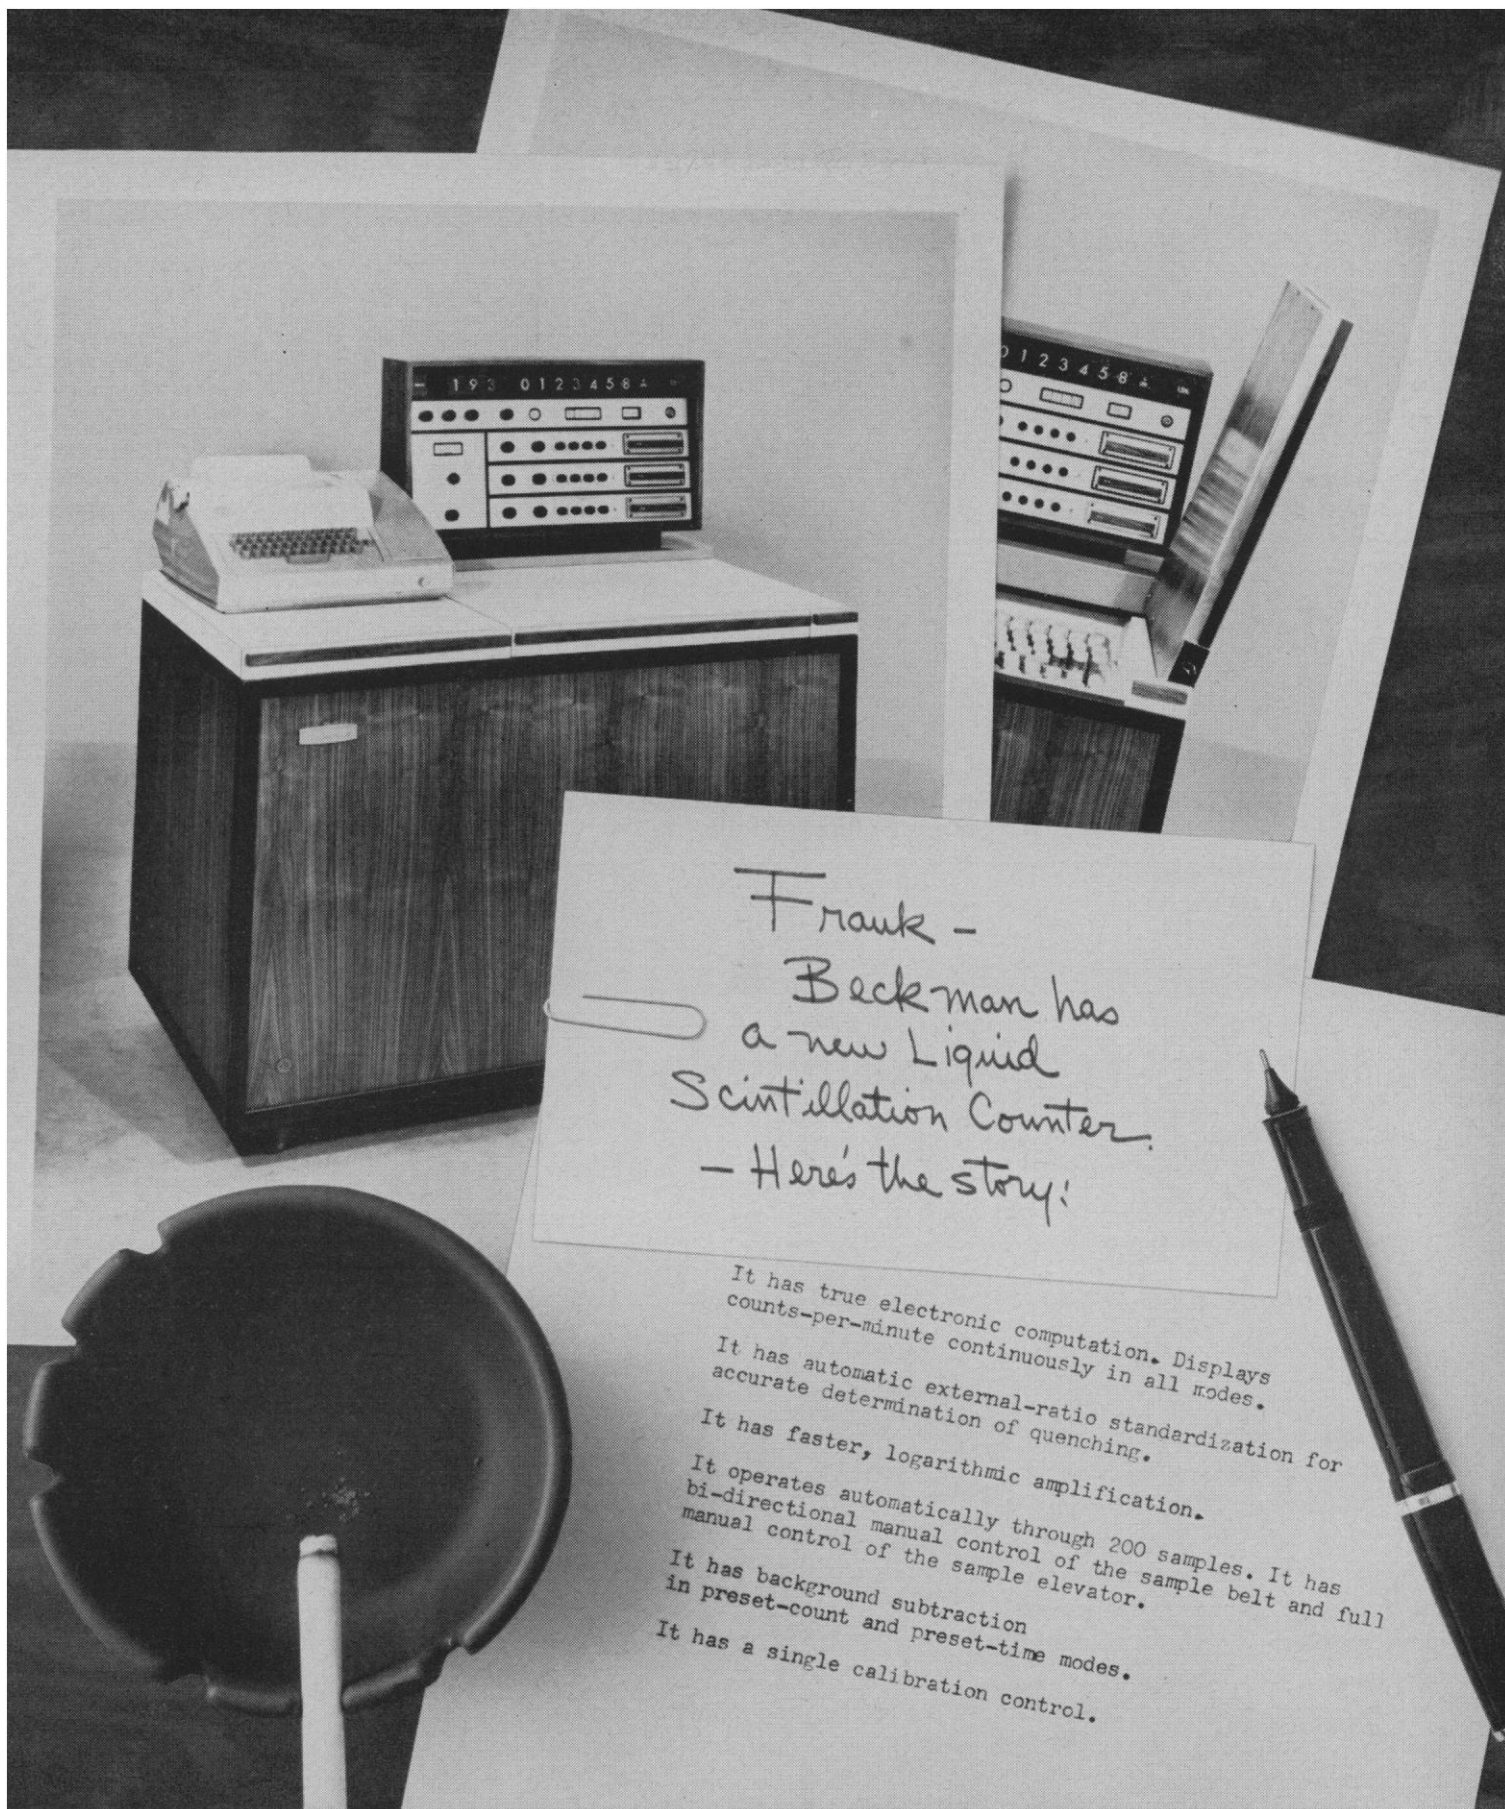 193 0123458
0123458
Frank -
Beckman has
a new Liquid
Scintillation Counter.
- Here's the story:
It has true electronic computation. Displays
counts-per-minute continuously in all modes.
It has automatic external-ratio standardization for
accurate determination of quenching.
It has faster, logarithmic amplification.
It operates automatically through 200 samples. It has
bi-directional manual control of the sample belt and full
manual control of the sample elevator.
It has background subtraction
in preset-count and preset-time modes.
It has a single calibration control.